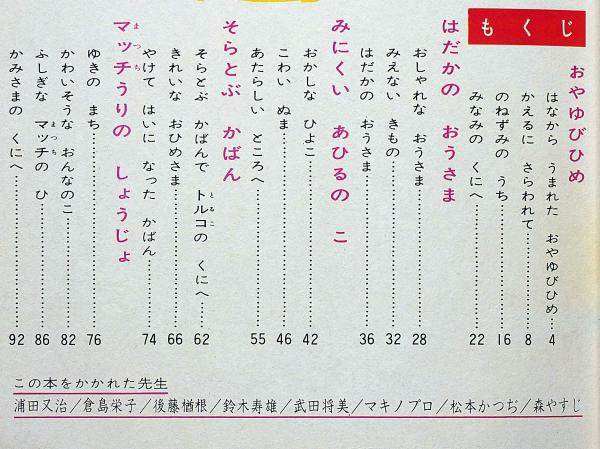 もくじ
おやゆびひめ
はなから うまれた おやゆびひめ…4
かえるに さらわれて…8
のねずみの うち…16
みなみの くにへ…22
はだかの おうさま
おしゃれな おうさま…28
みえない きもの…32
はだかの おうさま…36
みにくい あひるの こ
おかしな ひよこ…42
こわい ぬま…46
あたらしい ところへ…55
そらとぶ かばん
そらとぶ かばんで トルコの くにへ…62
とるこ
きれいな おひめさま…66
やけて はいに なった かばん…74
マッチうりの しょうじょ
まつち
ゆきの まち…76
かわいそうな おんなのこ…82
ふしぎな マッチの ひ…86
まつち
かみさまの くにへ…92
この本をかかれた先生
浦田又治/倉島栄子/後藤楢根/鈴木寿雄/武田将美/マキノプロ/松本かつぢ/森やすじ